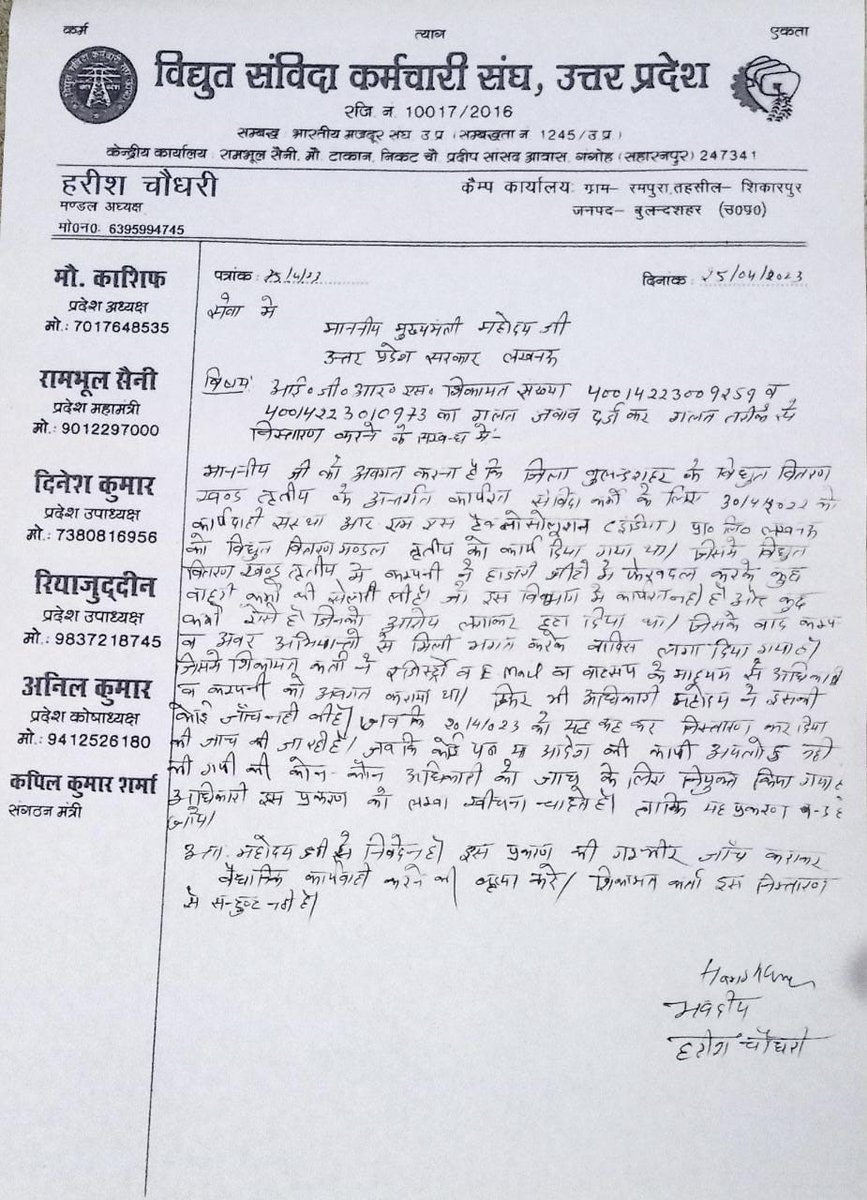 कर्म त्याग एकता
विद्युत संविदा कर्मचारी संघ, उत्तर प्रदेश
रजि. न. 10017/2016
सम्बद्ध भारतीय मजदूर संघ उ.प्र. (सम्बद्धता न. 1245/उ.प्र.)
केन्द्रीय कार्यालय : रामभूल सैनी, मौ. टाकान, निकट चौ. प्रदीप सांसद आवास, गंगोह (सहारनपुर) 247341
हरीश चौधरी
मण्डल अध्यक्ष
मो0न0: 6395994745
कैम्प कार्यालय: ग्राम- रमपुरा, तहसील- शिकारपुर
जनपद- बुलन्दशहर (उ0प्र0)
मौ. काशिफ
प्रदेश अध्यक्ष
मो.: 7017648535
रामभूल सैनी
प्रदेश महामंत्री
मो.: 9012297000
दिनेश कुमार
प्रदेश उपाध्यक्ष
मो.: 7380816956
रियाजुद्दीन
प्रदेश उपाध्यक्ष
मो.: 9837218745
अनिल कुमार
प्रदेश कोषाध्यक्ष
मो.: 9412526180
कपिल कुमार शर्मा
संगठन मंत्री
पत्रांक : 25/4/23 दिनांक : 25/04/2023
सेवा मे
माननीय मुख्यमंत्री महोदय जी
उत्तर प्रदेश सरकार लखनऊ
विषय: आई॰जी॰आर॰एस॰ शिकायत संख्या 40014223009259 व
40014223010973 का गलत जवाब दर्ज कर गलत तरीके से
निस्तारण करने के सम्बन्ध में-
माननीय जी को अवगत कराना है कि जिला बुलन्दशहर के विद्युत वितरण
खण्ड तृतीय के अन्तर्गत कार्यरत संविदा कर्मी के लिए 30/4/2022 को
कार्यदाही संस्था आर एम एस टैक्नोसोलूशन (इंडिया) प्रा॰ लि॰ लखनऊ
को विद्युत वितरण मण्डल तृतीय को कार्य दिया गया था। जिसमे विद्युत
वितरण खण्ड तृतीय मे कम्पनी ने हाजरी सीटो मे फेरबदल करके कुछ
बाहरी कर्मी की सेलरी ली है। जो इस विभाग मे कार्यरत नही है और कुछ
कर्मी ऐसे है जिनको आरोप लगाकर हटा दिया था। जिसके बाद
व अवर अभियन्ता से मिली भगत करके वापिस लगा दिया गया है।
जिसमे शिकायत कर्ता ने रजिस्ट्री व E Mail व वाटसप के माध्यम से अधिकारी
व कम्पनी को अवगत कराया था। फिर भी अधिकारी महोदय ने इसकी
कोई जाँच नही की है। जब कि 20/4/023 को यह कह कर निस्तारण कर दिया
की जाच की जा रही है। जब कि कोई पत्र या आदेश की कापी अपलोड नही
की गयी की कौन-कौन अधिकारी को जाच के लिए नियुक्त किया गया है
अधिकारी इस प्रकरण को लम्बा खीचना चाहते है। ताकि यह प्रकरण
जाये।
अतः महोदय जी से निवेदन है। इस प्रकरण की गम्भीर जाँच कराकर
वैधानिक कार्यवाही करने की कृपया करे। शिकायत कर्ता इस निस्तारण
से सन्तुष्ट नही है।
भवदीय
हरीश चौधरी